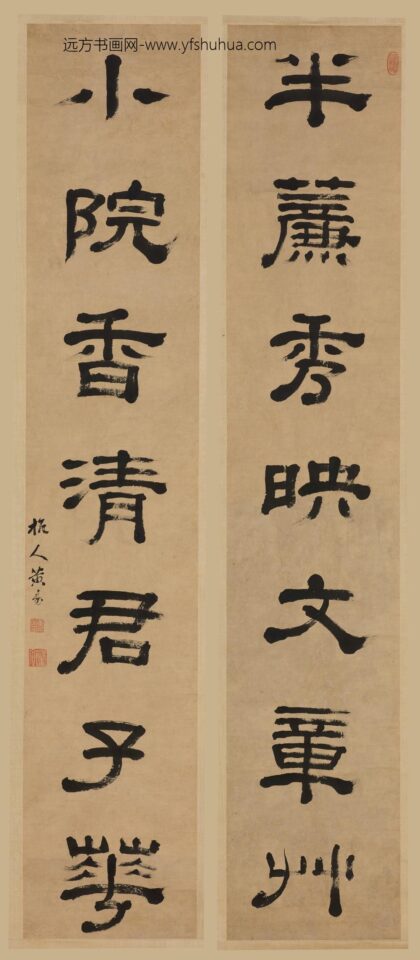 远方书画网-www.yfshuhua.com
半薕秀映文章艸
小院香清君子華
人黄易